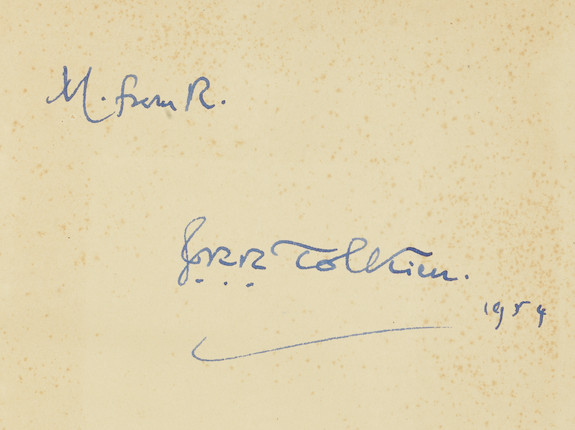 M. from R.
JRR Tolkien.
1954